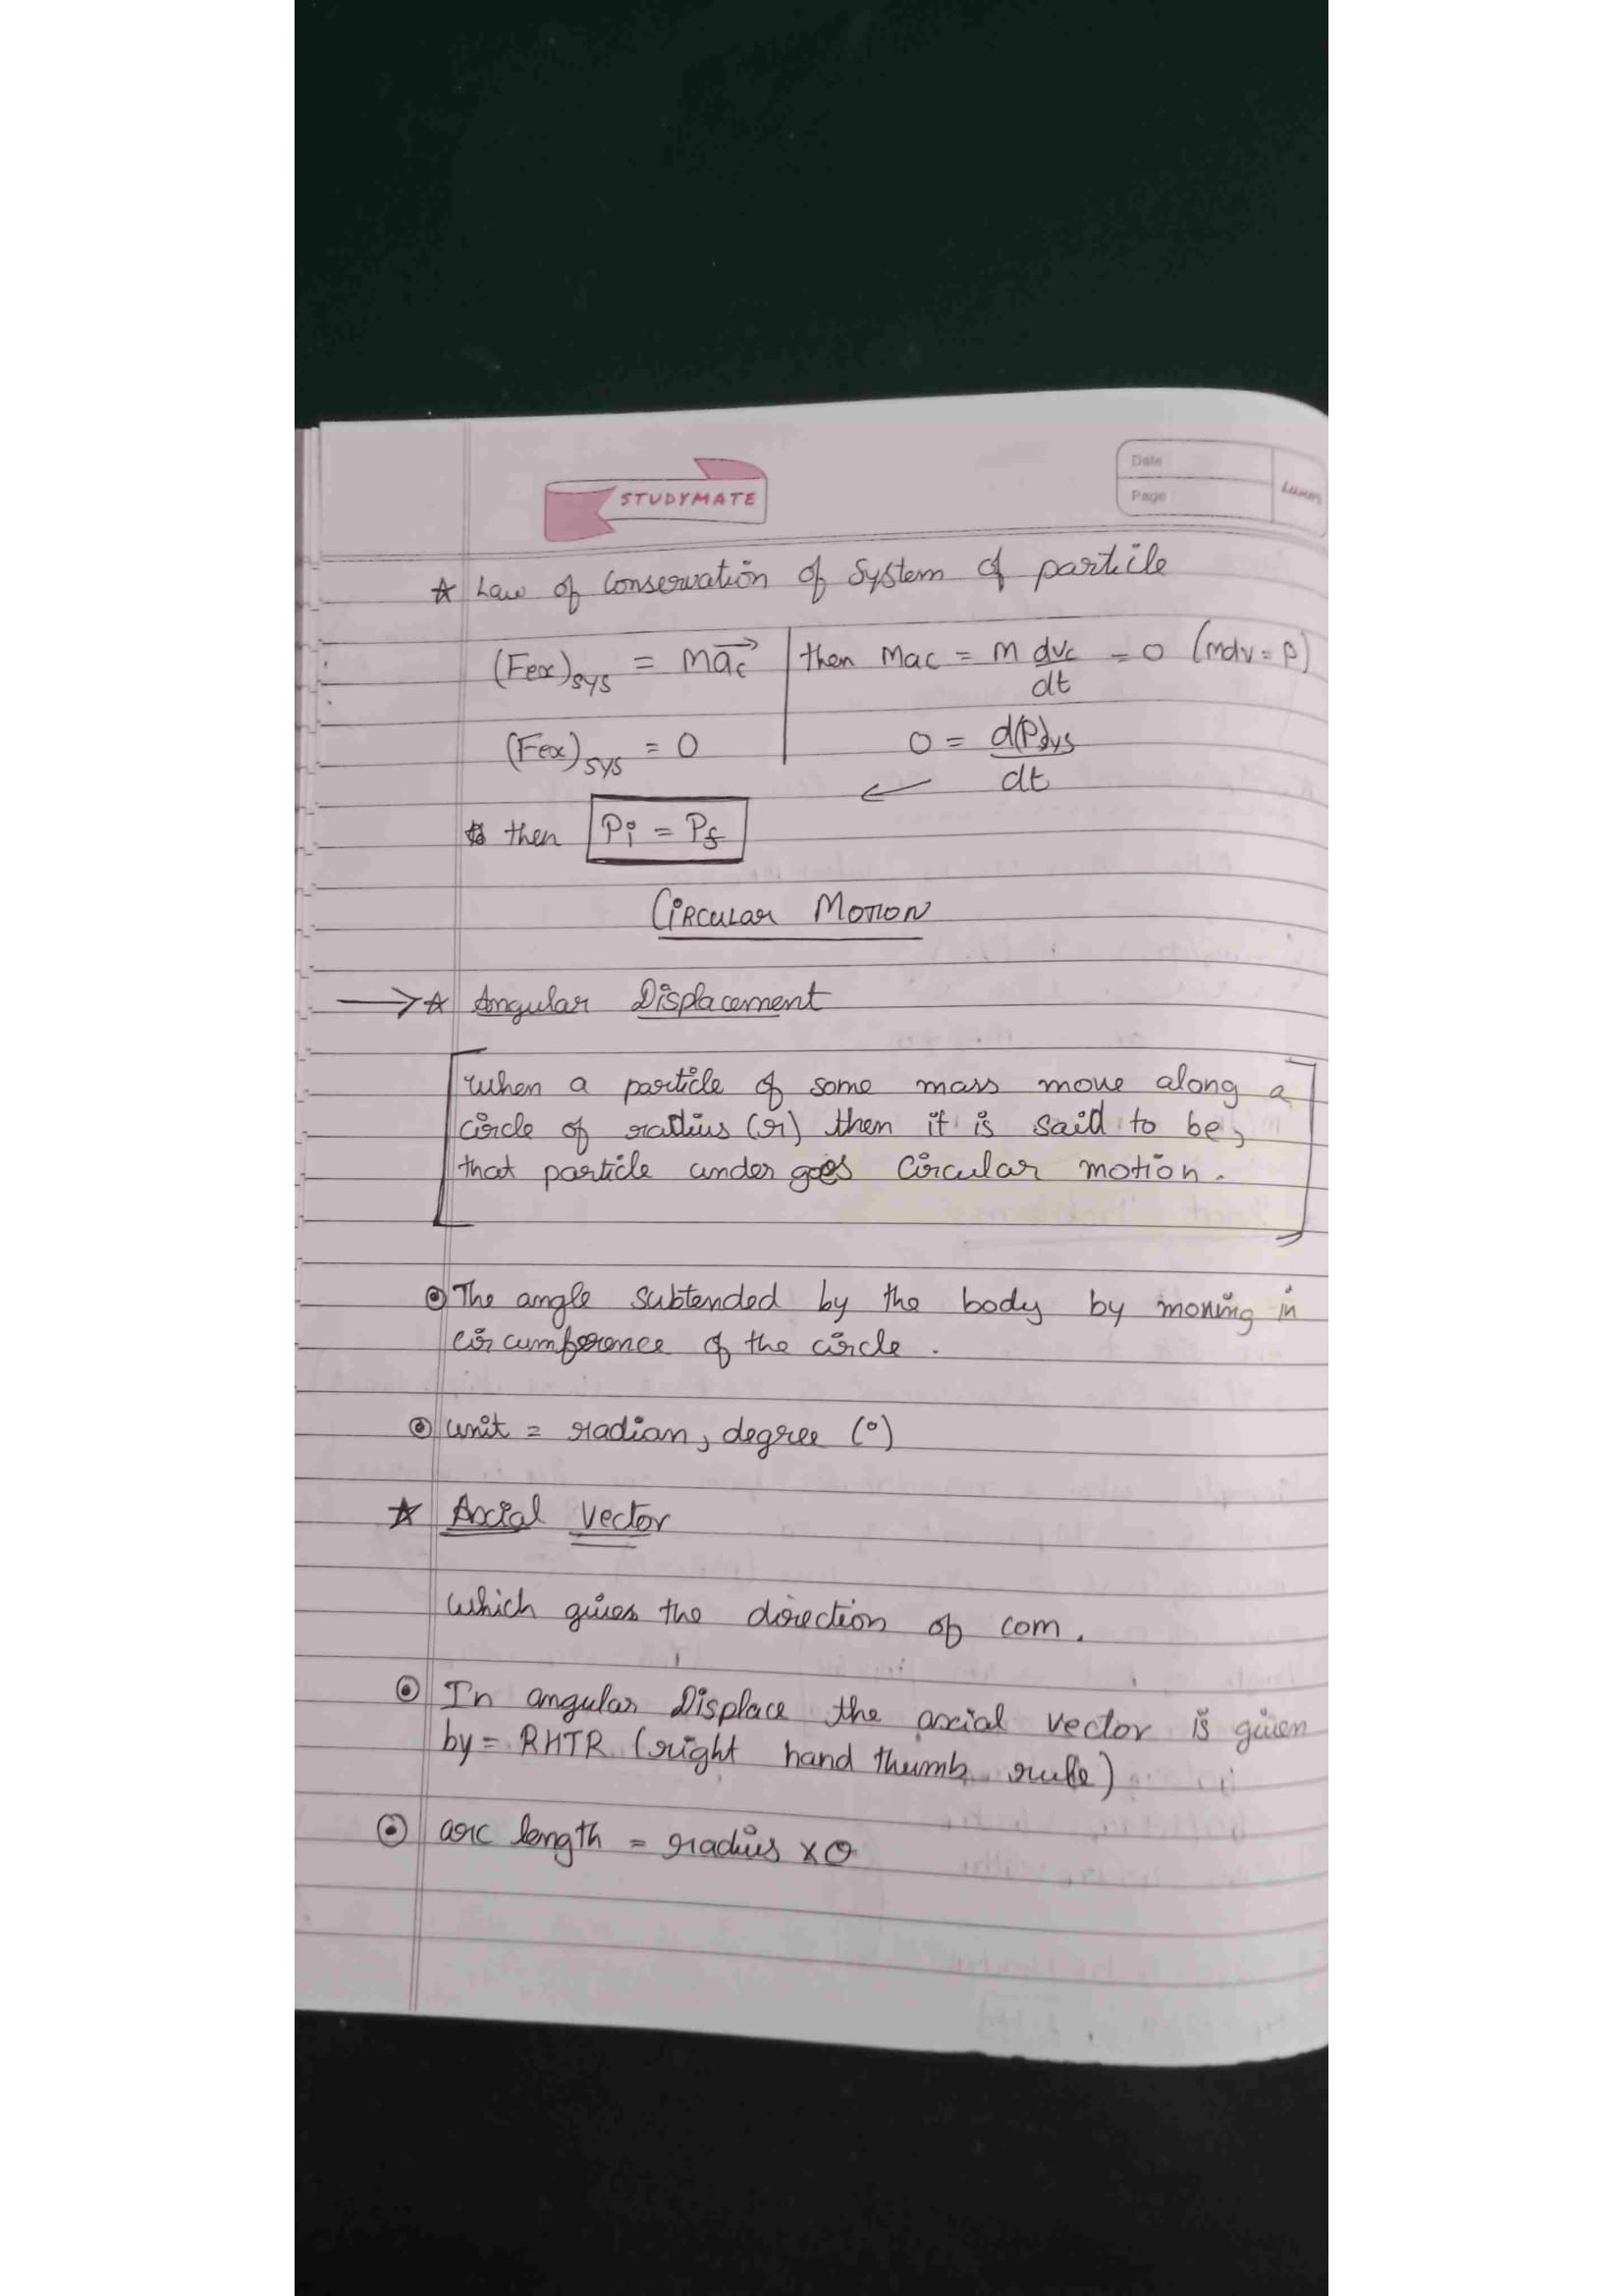 STUDYMATE
Date
Page
☆ Law of Conservation of System of particle
(Fex)sys = Mac→ | then Mac = M dvc/dt = 0 (mdv = P)
(Fex)sys = 0 | 0 = d(P)sys/dt
then Pi = Pf
CIRCULAR MOTION
→☆ Angular Displacement
[When a particle of some mass move along a
circle of radius (r) then it is said to be,
that particle under goes circular motion.]
⊙ The angle subtended by the body by moving in
circumference of the circle.
⊙ unit = radian, degree (°)
☆ Axial Vector
which gives the direction of com.
⊙ In angular Displace the axial vector is given
by = RHTR (right hand thumb rule)
⊙ arc length = radius × θ